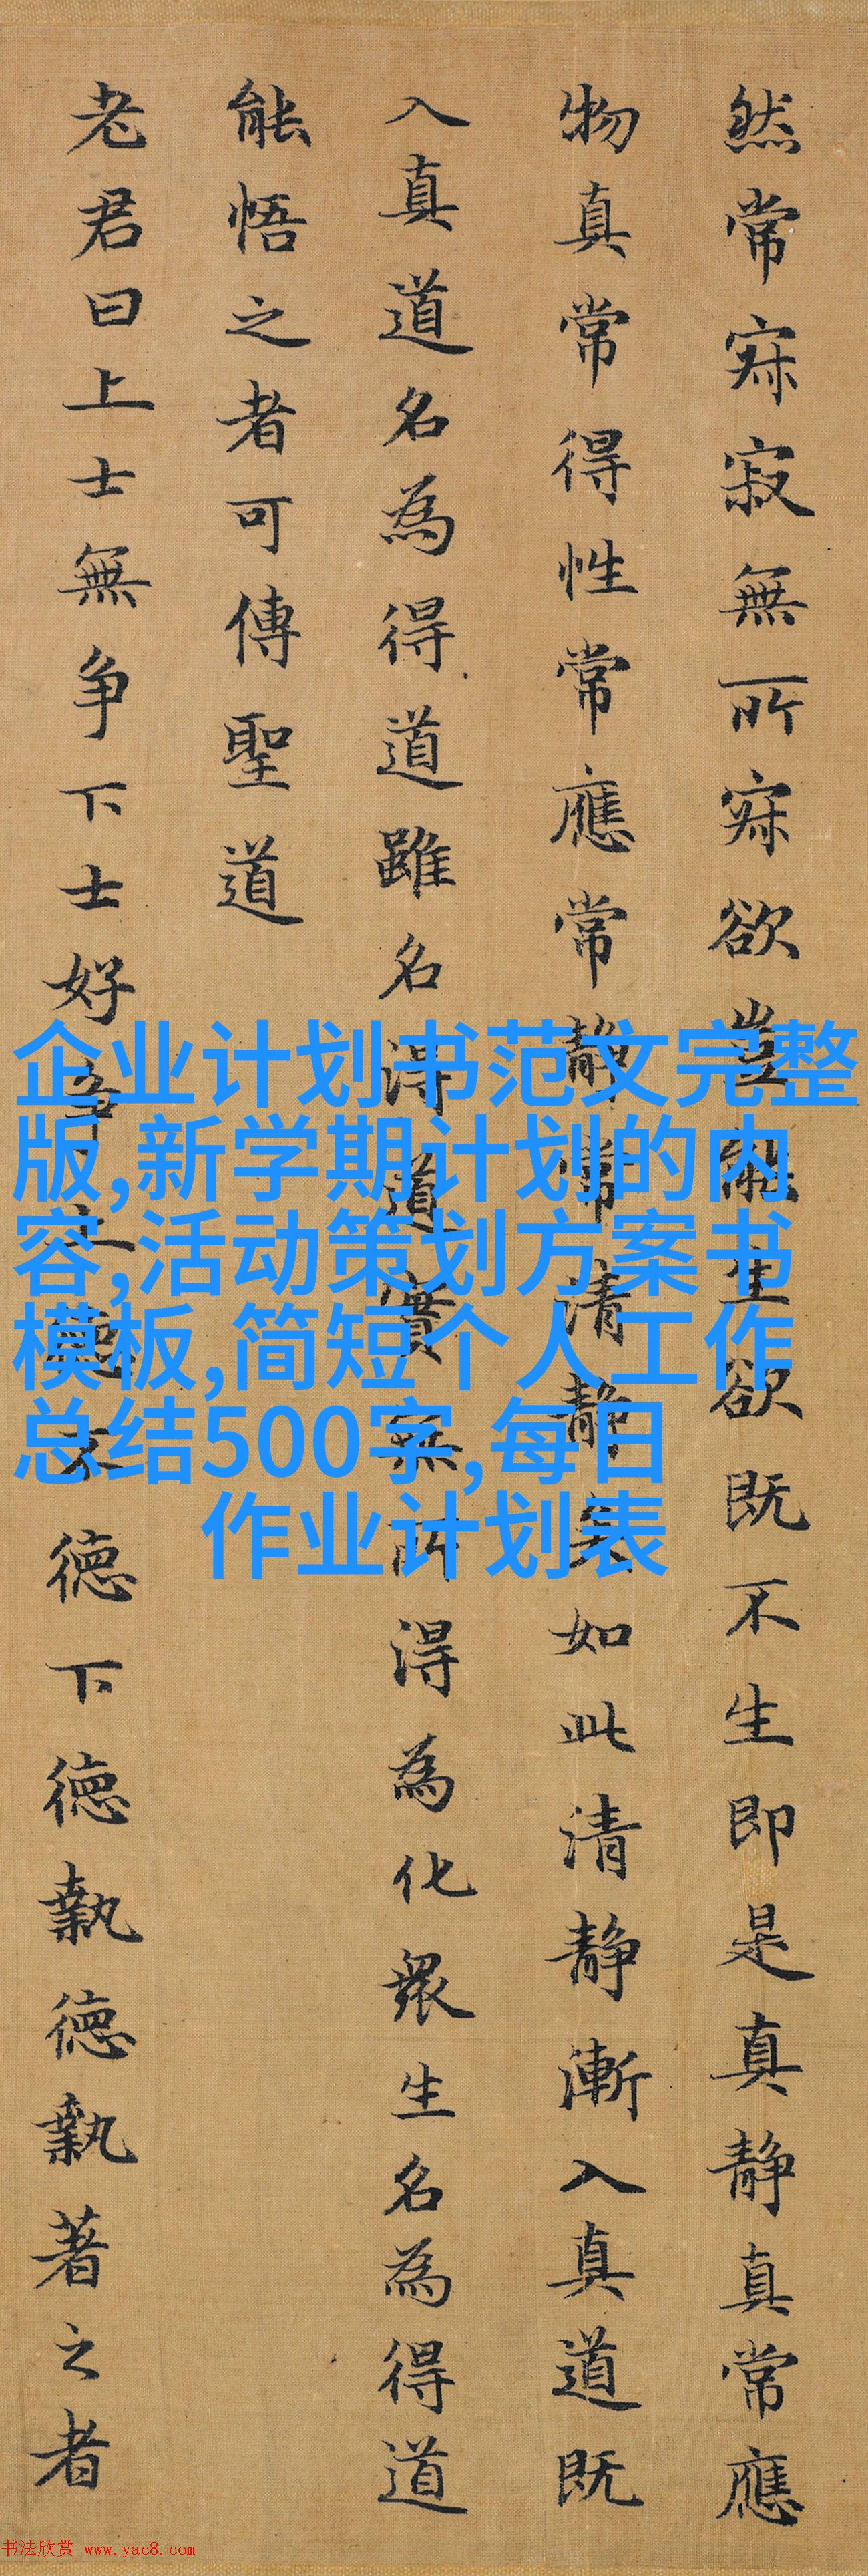 然常寂寂無所寂欲豈能生欲既不生即是真静真常應
物真常得性常應常静常清静矣如此清静漸入真道既
入真道名為得道雖名得道實無所得為化衆生名為得道
能悟之者可傳聖道
老君曰上士無争下士好争上德不德下德執德執著之者
企业计划书范文完整
版,新学期计划的内
容,活动策划方案书
模板,简短个人工作
总结500字,每日
作业计划表
书法欣赏 www.yac8.com